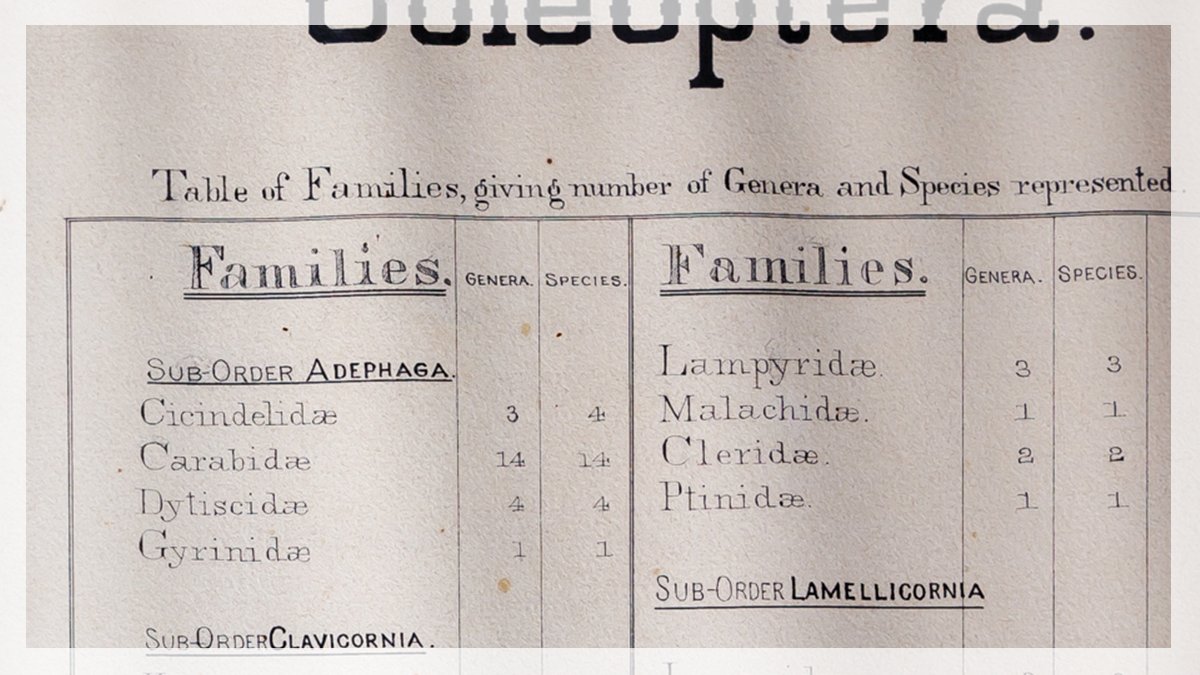 Coleoptera.
Table of Families, giving number of Genera and Species represented
Families. GENERA. SPECIES.
SUB-ORDER ADEPHAGA.
Cicindelidæ 3 4
Carabidæ 14 14
Dytiscidæ 4 4
Gyrinidæ 1 1
SUB-ORDER CLAVICORNIA.
Families. GENERA. SPECIES.
Lampyridæ. 3 3
Malachidæ. 1 1
Cleridæ. 2 2
Ptinidæ. 1 1
SUB-ORDER LAMELLICORNIA